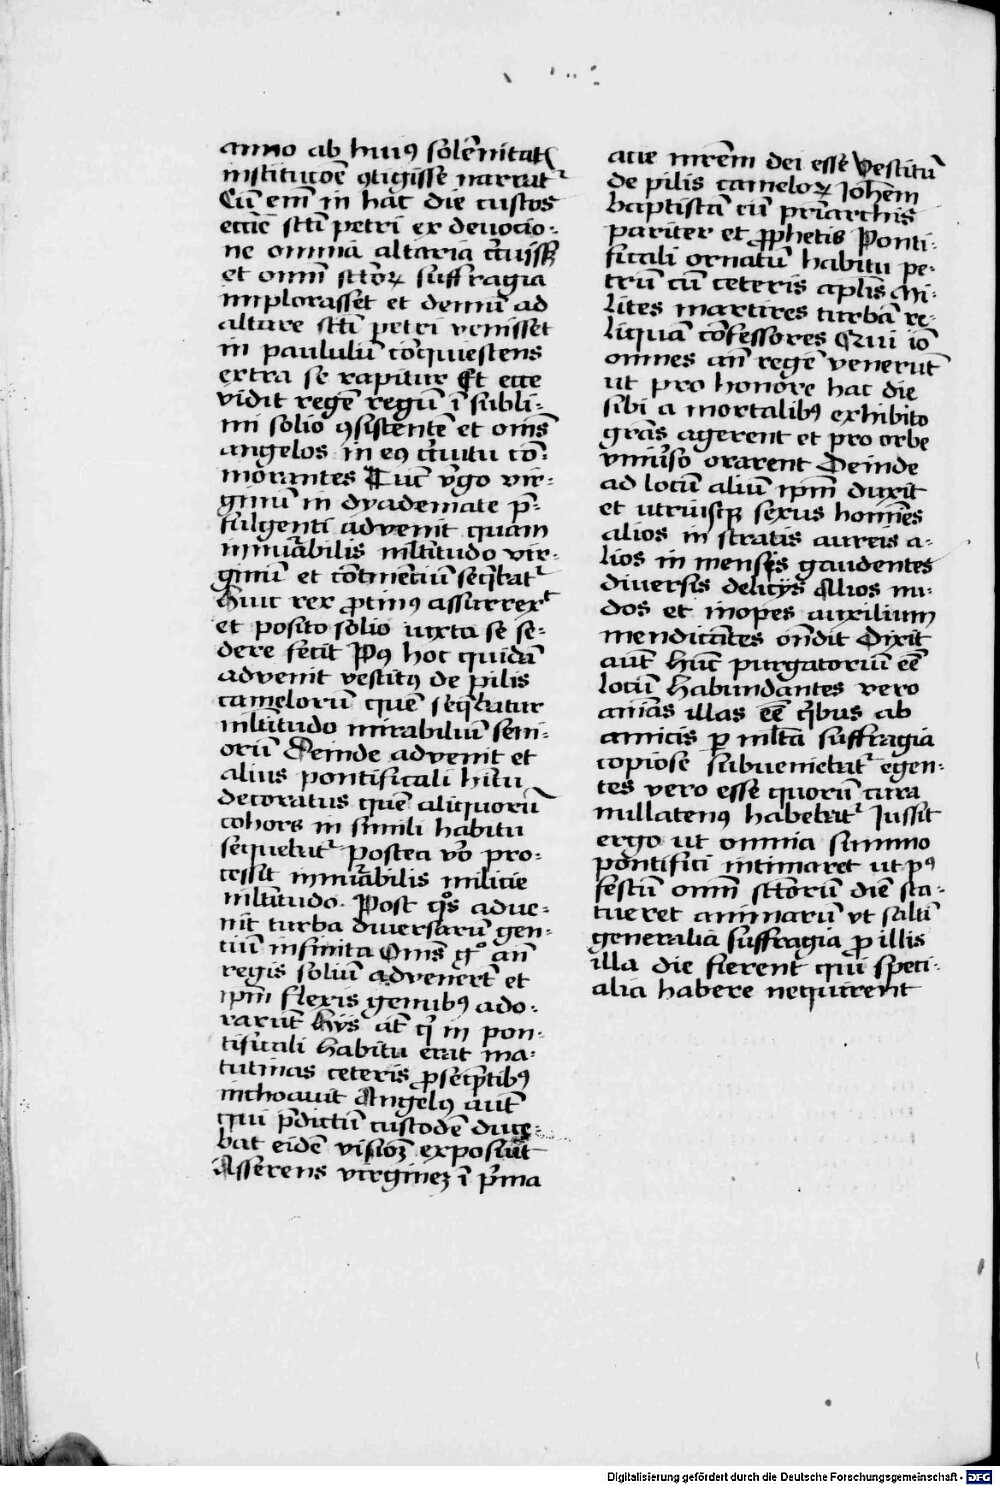 anno ab huiꝰ solēnitatꝭ
institucōe ꝯtigisse narratᷣ
Cū em̄ in hac die custos
eccīe sct̄i petri ex deuocio-
ne omnia altaria
et omniū sctōꝝ suffragia
implorasset et demū ad
altare sct̄i petri venisset
in paululū cōquiestens
extra se rapitur Et ecce
vidit regē regū ī subli-
mi solio ꝯsistentē et om̄s
angelos in eꝰ cͥcuitu cō-
morantes Tūc vͦgo vir-
ginū in dyademate p̄-
fulgenti advenit quam
innūabilis ml̄titudo vir-
ginū et cōtinēciū seq̄batᷣ
Huic rex ꝓtinꝰ assurrexͭ
et posito solio iuxta se se-
dere fecit Pꝰ hoc quidā
advenit vestitꝰ de pilis
camelorū quē seq̄batur
ml̄titudo mirabiliū seni-
orū Deinde advenit et
alius pontificali hītu
decoratus quē aliquorū
cohors in simili habitu
sequebatᷣ postea vͦo pro-
cessit innūabilis milicie
ml̄titudo. Post qͦs adve-
nit turba diversarū gen-
tiū infinita Om̄s gͦ an̄
regis soliū advenerūt et
ip̄m flexis genubꝰ ado-
rarūt Hys at̄ qͥ in pon-
tificali habitu erat ma-
tutinas ceteris ꝓseq̄ntibꝰ
inchoauit Angelꝰ aut̄
qui p̄dictū custodē duce-
bat eidē visionꝫ exposuit
Asserens virginēꝫ ī pͥma
acie mr̄em dei esse Vestitū
de pilis cameloꝝ Joh̄em
baptistā cū priārchis
pariter et ꝓphetis Ponti-
ficali ornatū habitu pe-
trū cū ceteris apl̄is Mi-
lites martires turbā re-
liquā cōfessores Qui iō
omnes an̄ regē venerūt
ut pro honore hac die
sibi a mortalibꝰ exhibito
grās agerent et pro orbe
vniuͥso orarent Deinde
ad locū aliū ip̄m duxit
et utriusqꝫ sexus homīes
alios in stratis aureis a-
lios in mensis gaudentes
diversis delicijs Alios nu-
dos et inopes auxilium
mendicātes ōndit Dixit
aut̄ hūc purgatoriū eē
locū Habundantes vero
aīas illas eē qͥbus ab
amicis ꝑ ml̄ta suffragia
copiose subuenietatᷣ egen-
tes vero esse quorū cura
nullatenꝰ habebatᷣ Jussit
ergo ut omnia summo
pontifici intimaret ut pꝰ
festū omn̄ sctōrū diē sta-
tueret animarū vt saltī
generalia suffragia ꝓ illis
illa die fierent qui speci-
alia habere nequirent